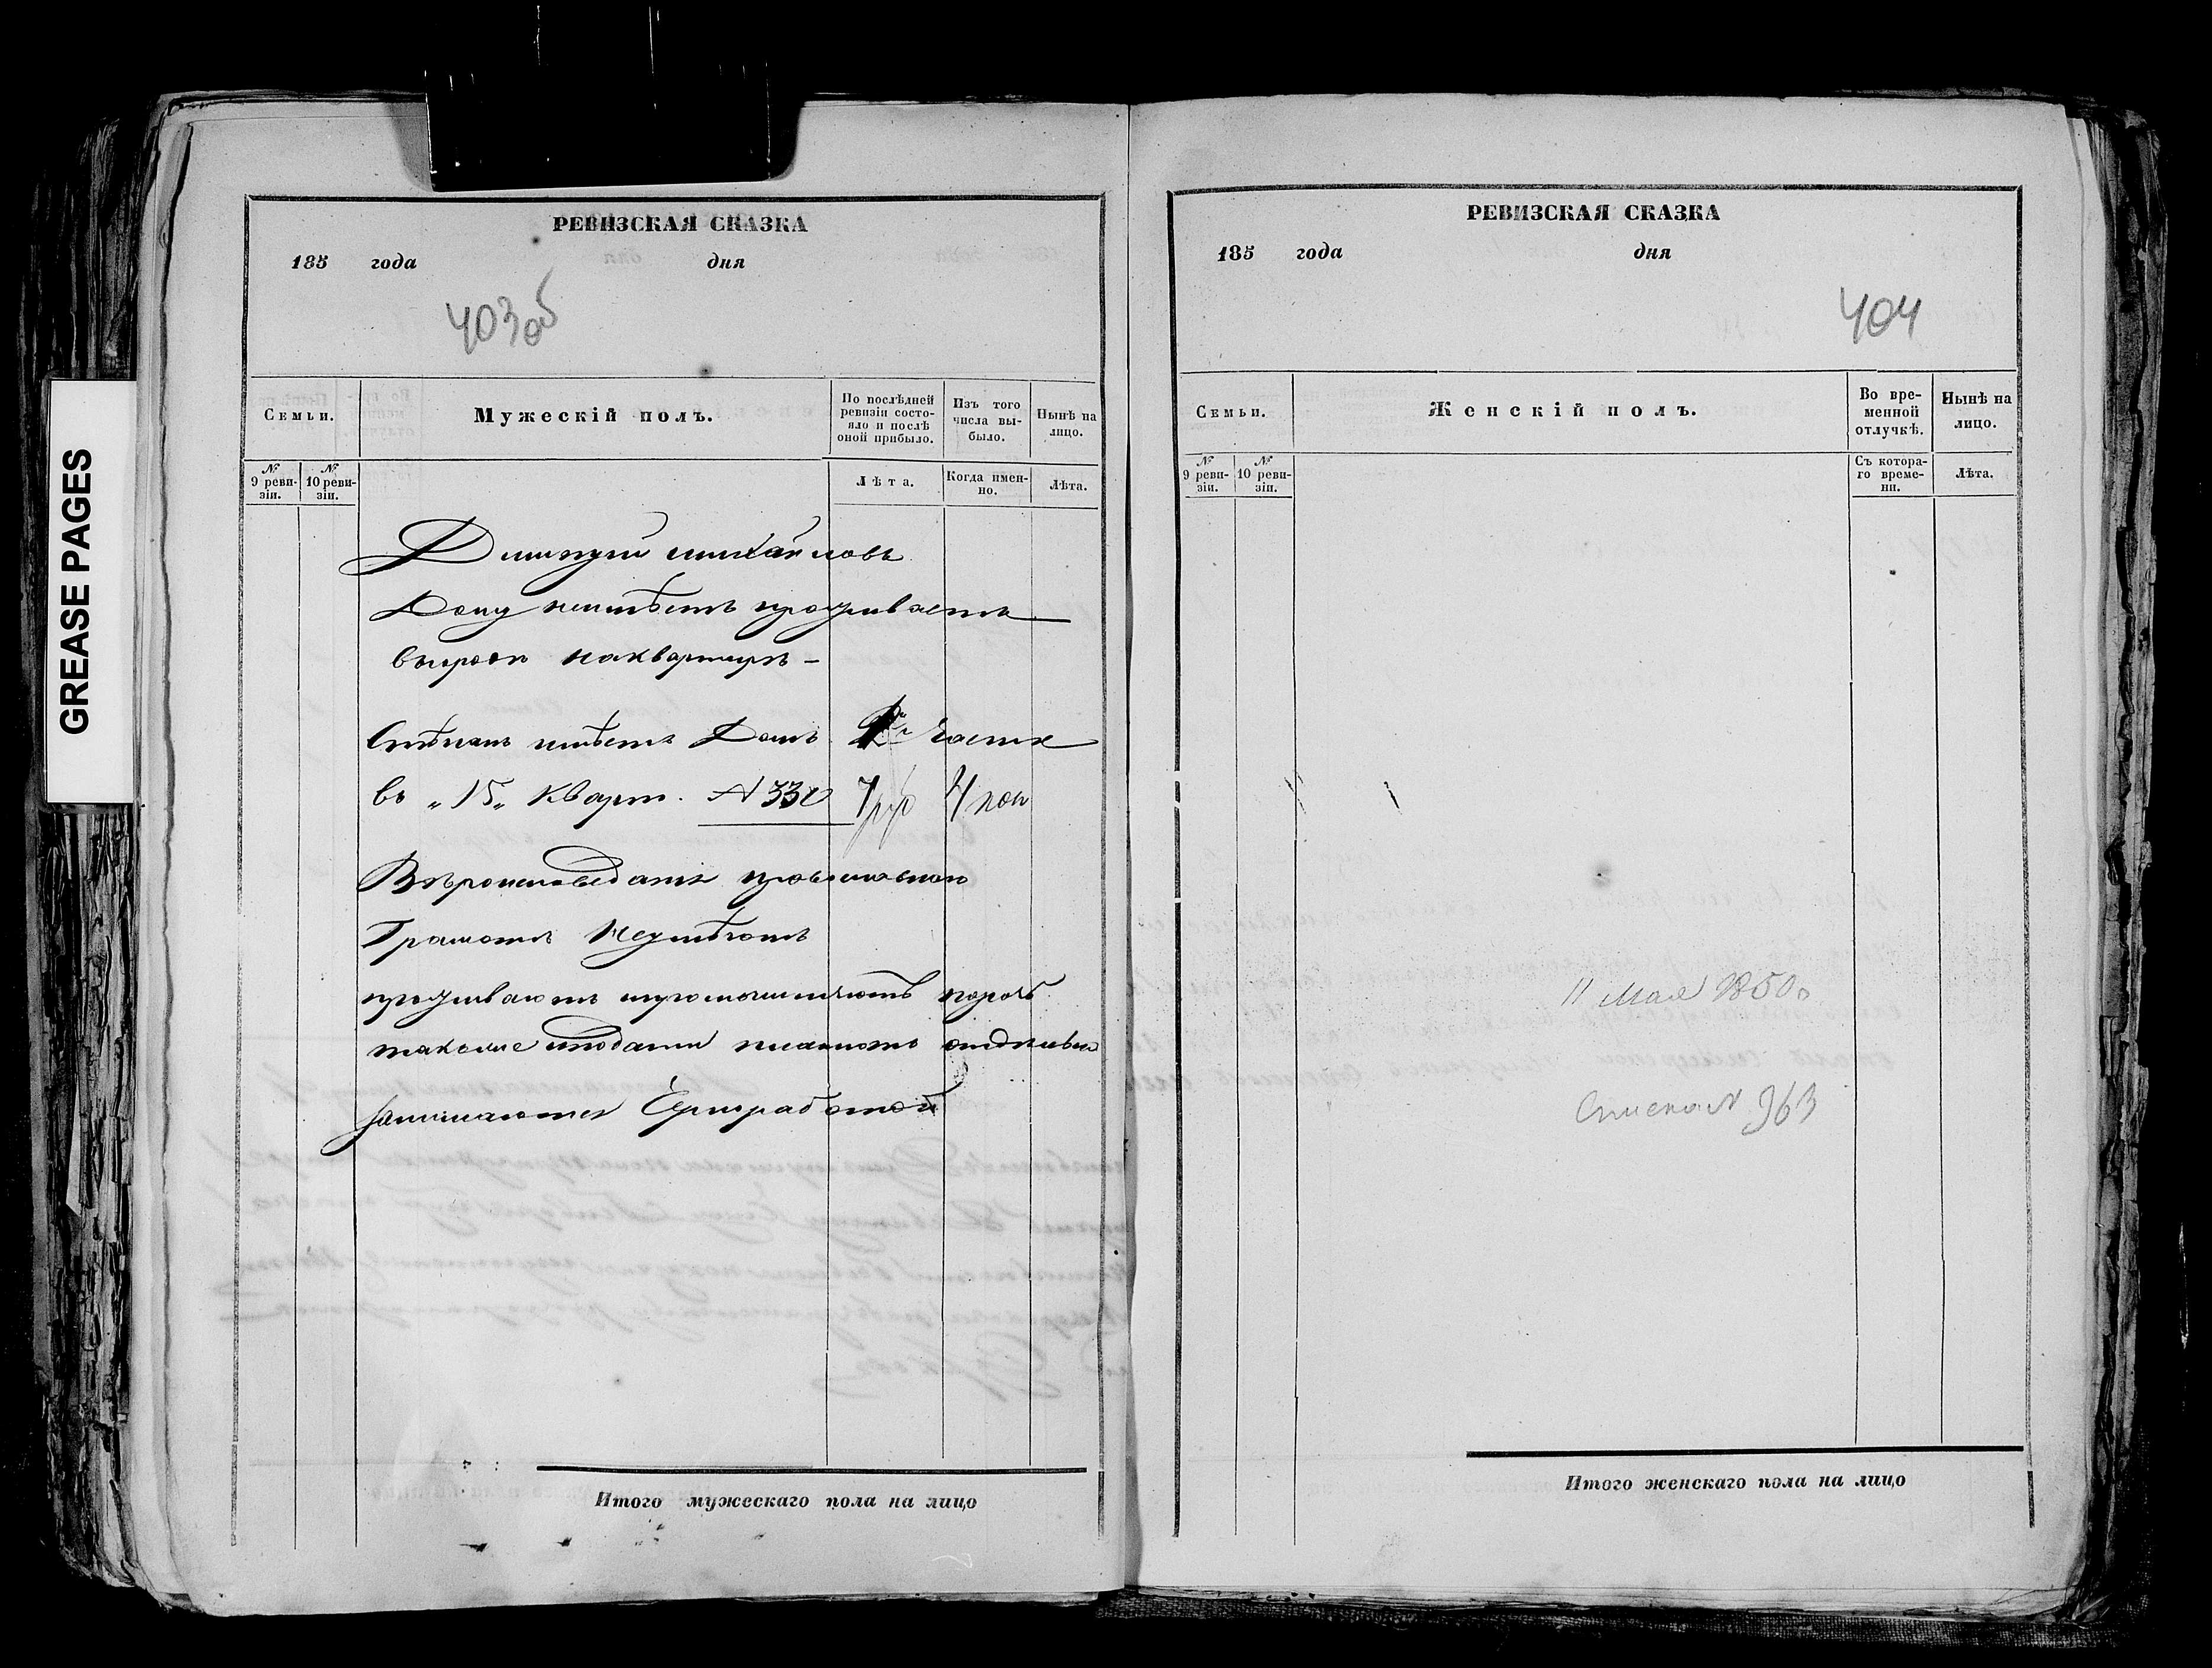 GREASE PAGES
РЕВИЗСКАЯ СКАЗКА
185 года дня
403об
Семьи.
Мужескій полъ.
По послѣдней ревизіи состояло и послѣ оной прибыло.
Изъ того числа выбыло.
Нынѣ на лицо.
№ 9 ревизіи.
№ 10 ревизіи.
Лѣта.
Когда именно.
Лѣта.
Дмитрій Михайловъ
Дому неимѣетъ проживаетъ
вгороди наквартирѣ –
Степанъ имѣетъ Домъ части
въ „15„ Кварт. № 330 7 руб 4 коп
Вѣроисповеданія
Грамотѣ Неумѣютъ
проживаютъ
такъже иподати платютъ
занимаются Чернработой
Итого мужескаго пола на лицо
РЕВИЗСКАЯ СКАЗКА
185 года дня
404
Семьи.
Женскій полъ.
Во временной отлучкѣ.
Нынѣ на лицо.
№ 9 ревизіи.
№ 10 ревизіи.
Съ котораго времени.
Лѣта.
11 Мая 1850
Списка № 363
Итого женскаго пола на лицо